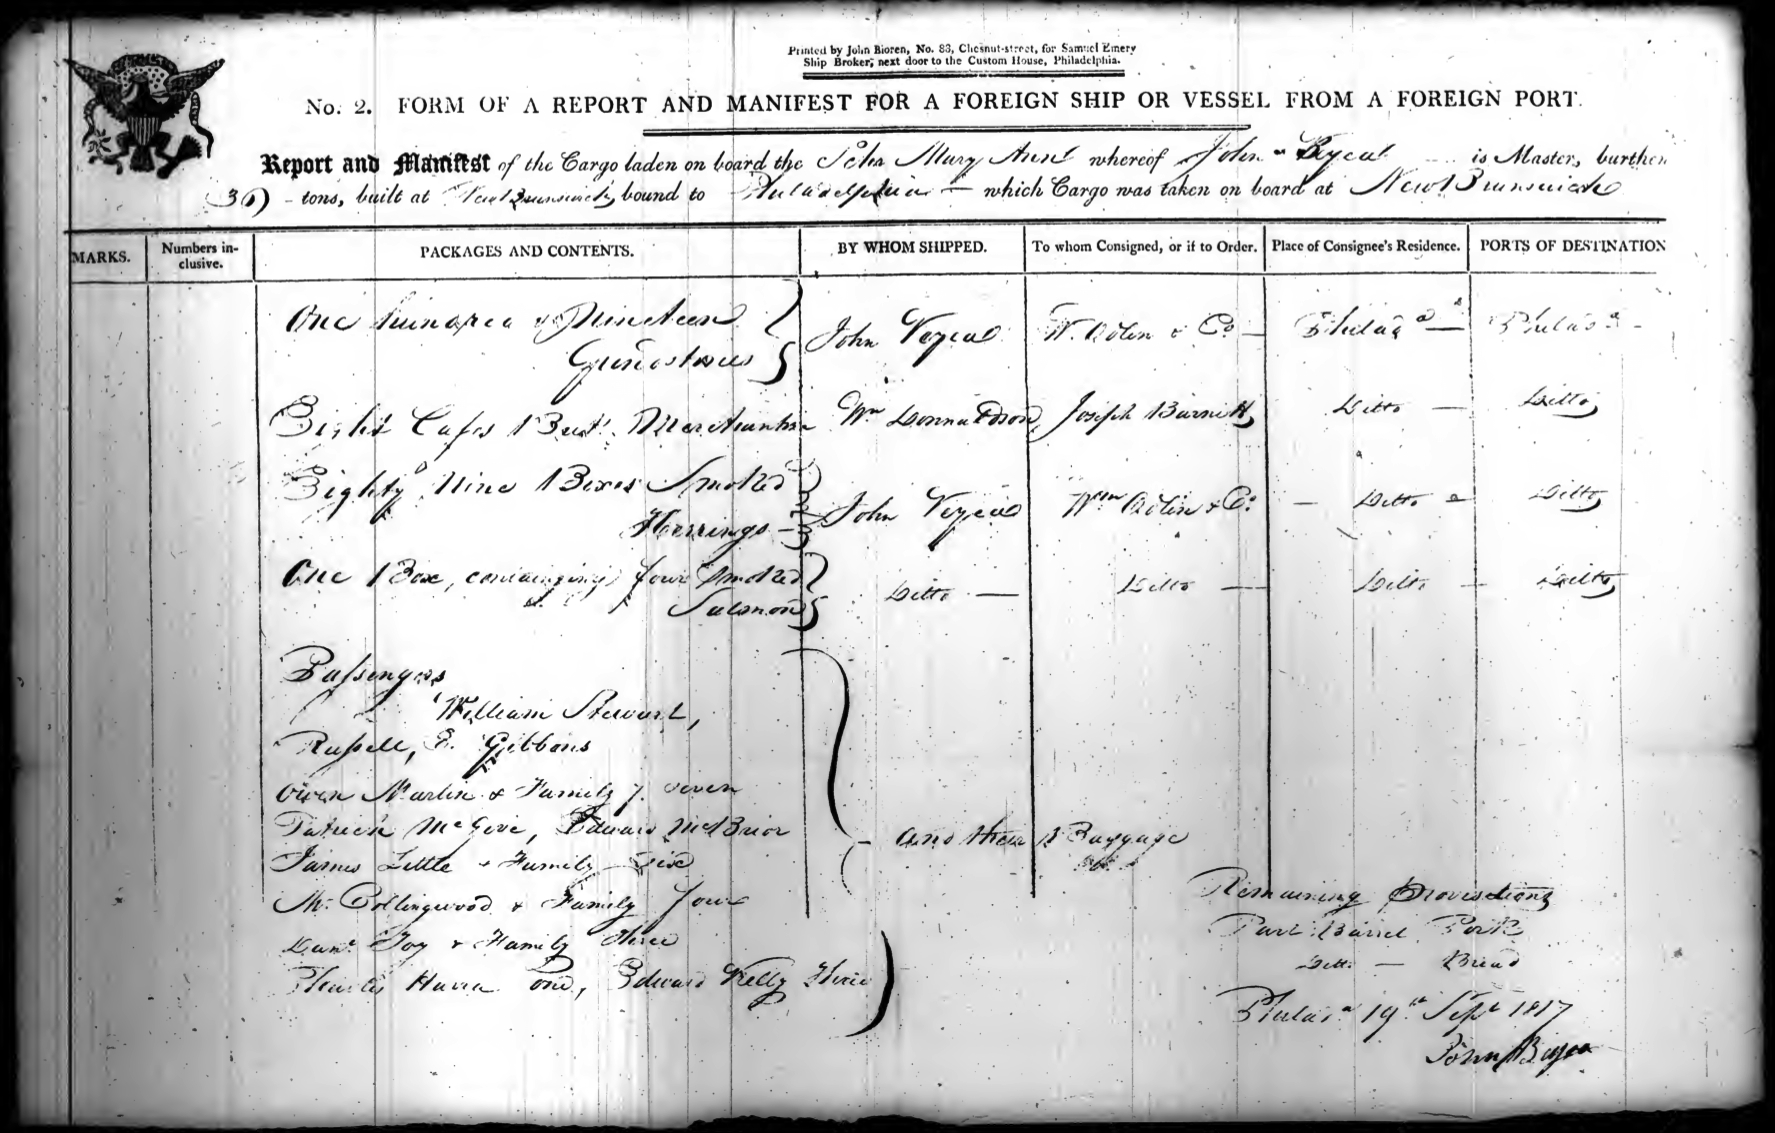 Printed by John Bioren, No. 83, Chesnut-street, for Samuel Emery
Ship Broker, next door to the Custom House, Philadelphia.
No. 2. FORM OF A REPORT AND MANIFEST FOR A FOREIGN SHIP OR VESSEL FROM A FOREIGN PORT.
Report and Manifest of the Cargo laden on board the Schr Mary Ann whereof John is Master, burthen
36 tons, built at New Brunswick, bound to Philadelphia — which Cargo was taken on board at New Brunswick
MARKS. Numbers inclusive. PACKAGES AND CONTENTS. BY WHOM SHIPPED. To whom Consigned, or if to Order. Place of Consignee's Residence. PORTS OF DESTINATION
One hundred & Nineteen
Grindstones John W. & Co — Philada — Philada -
Eight Casks Merchandise Wm Donnaldson Joseph Burnitt Ditto — Ditto
Eighty Nine Boxes Smoked
Herrings — John Wm & Co. — Ditto Ditto
One Box, containing four Smoked
Salmon Ditto — Ditto — Ditto — Ditto
Passengers
William Stewart,
Russell, E. Gibbons
Owen Martin & Family 7. seven
Patrick McGove, Edward McBrior
James Little & Family Six
Mr. Collingwood & Family four
- and their Baggage
Danl Foy & Family three
Charles one, Edward Kelly three
Remaining Provisions
Part Barrel Pork
Ditto — Bread
Philada 19th Sept 1817
John